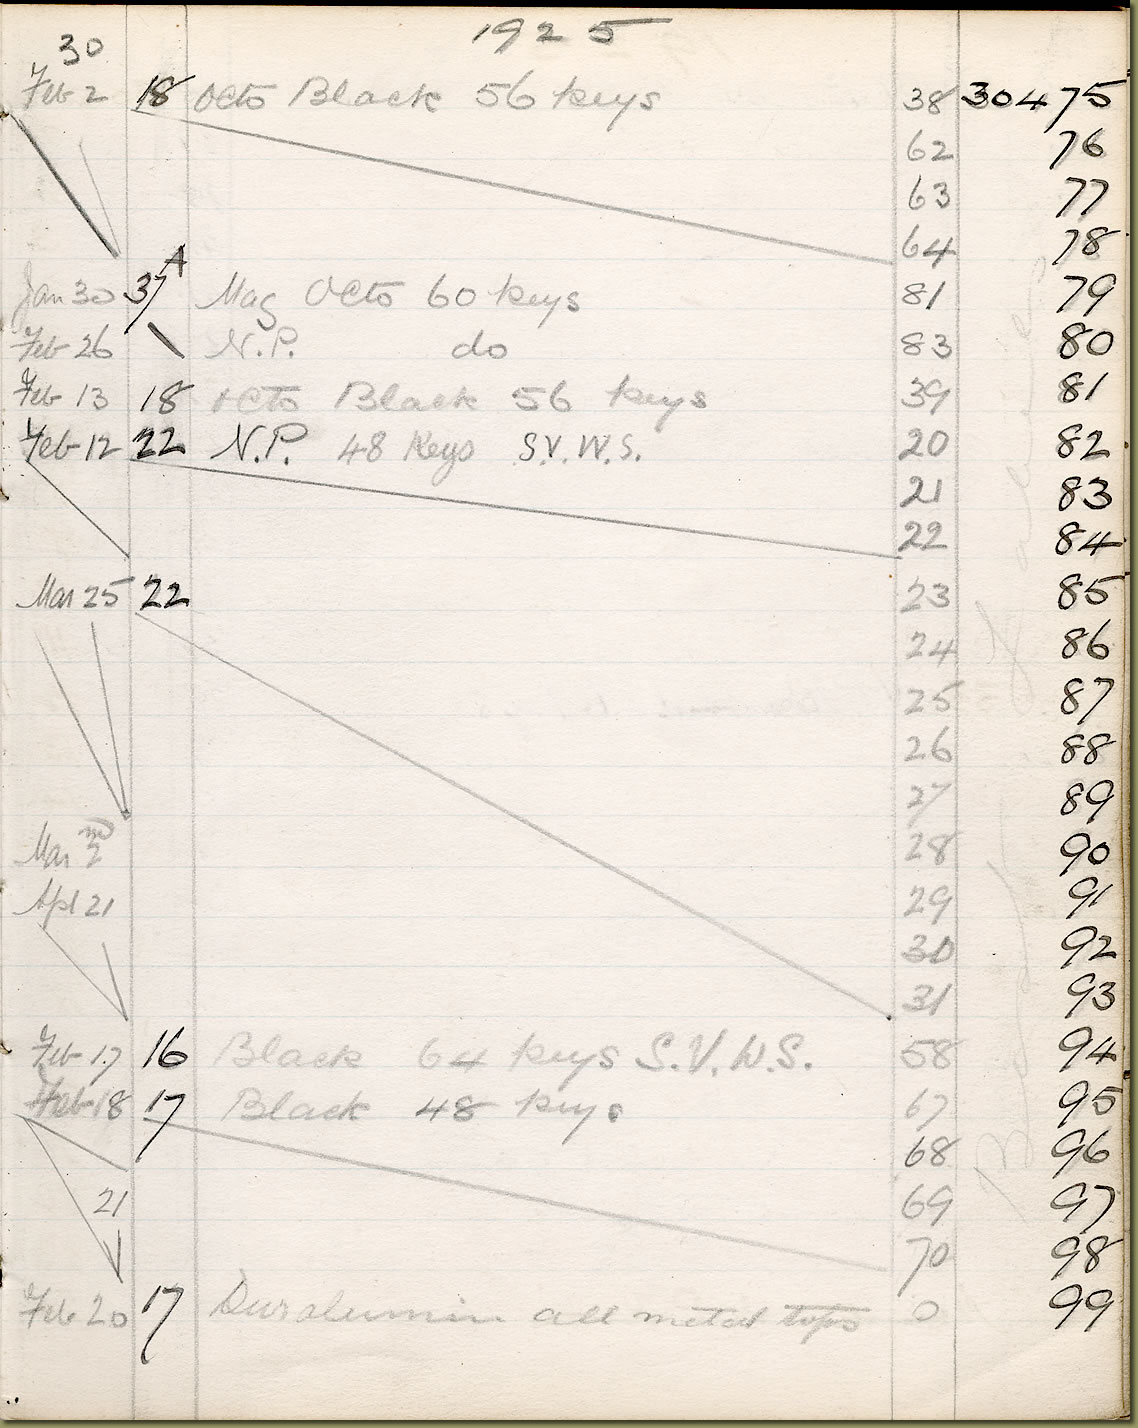 30 1925
Feb 2 18 Octo Black 56 keys 38 30475
62 76
63 77
64 78
Jan 30 37A Mag Octo 60 keys 81 79
Feb 26 N.P. do 83 80
Feb 13 18 octo Black 56 keys 39 81
Feb 12 22 N.P. 48 Keys S.V.W.S. 20 82
21 83
22 84
Mar 25 22 23 85
24 86
25 87
26 88
27 89
Mar 2nd 28 90
Apl 21 29 91
30 92
31 93
Feb 17 16 Black 64 keys S.V.W.S. 58 94
Feb 18 17 Black 48 keys 67 95
68 96
21 69 97
70 98
Feb 20 17 Duralumin all metal tops 0 99